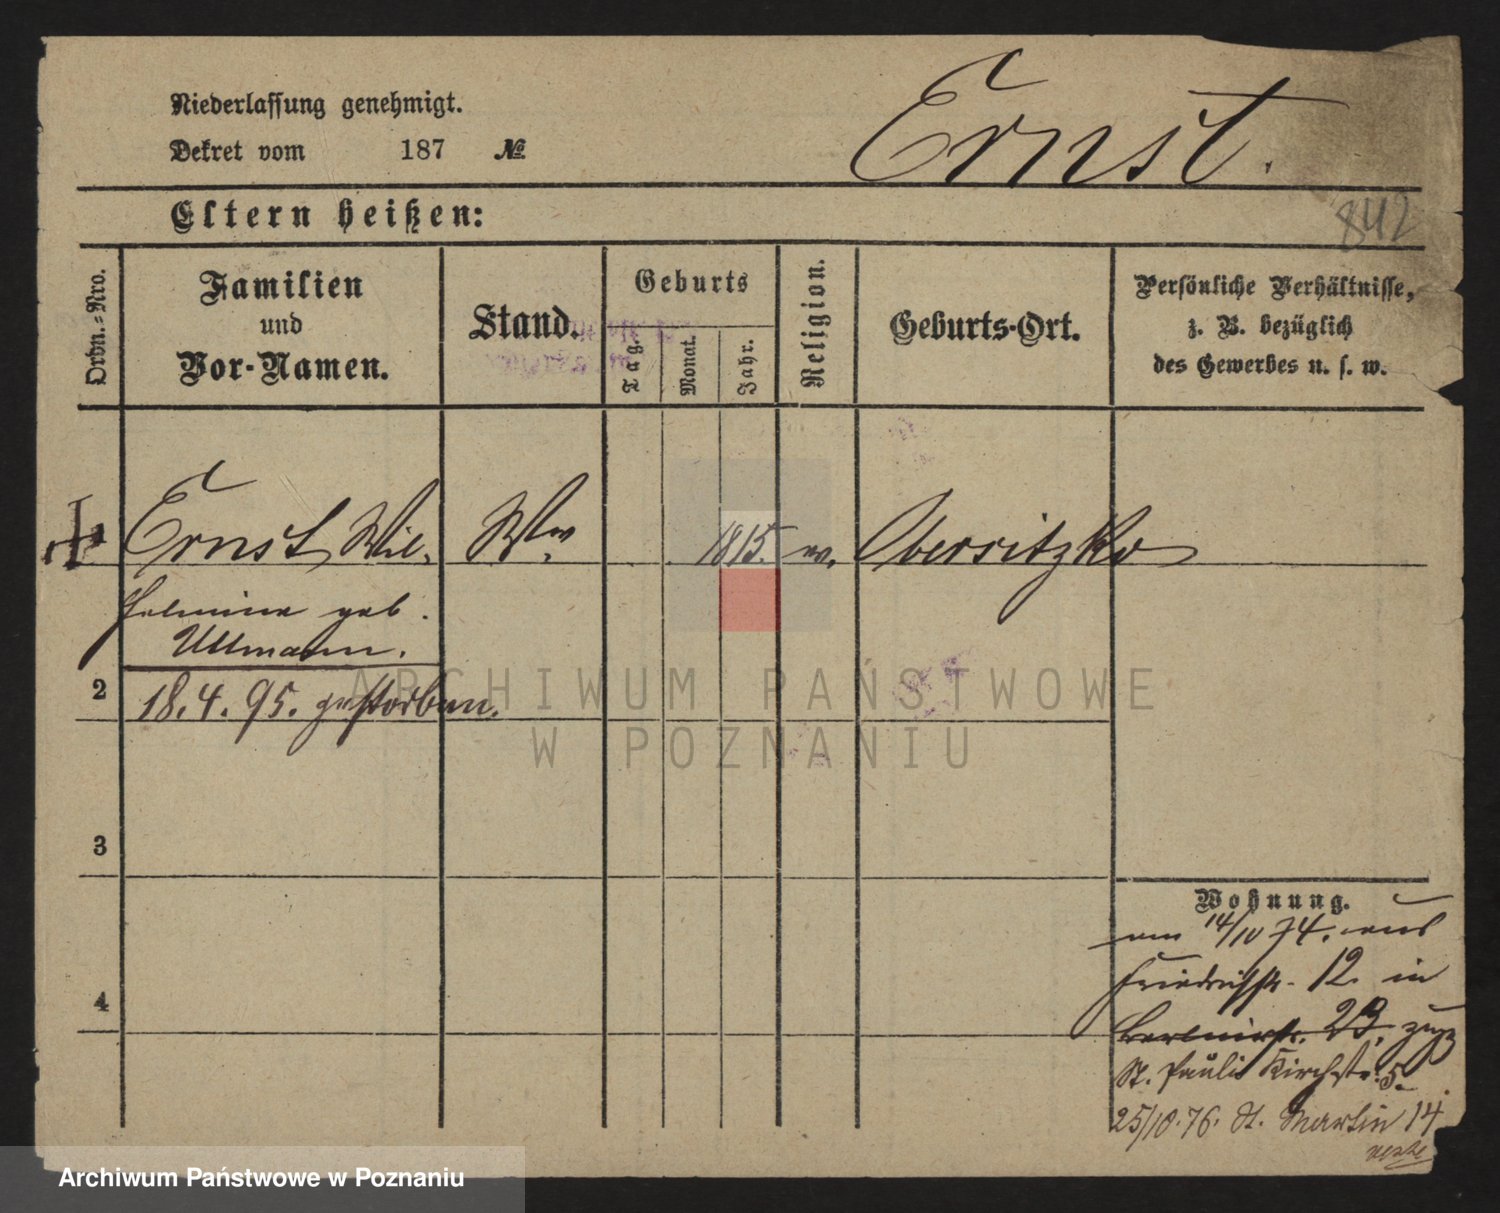 Niederlassung genehmigt.
Dekret vom 187 №
Ernst.
Eltern heißen:
842
Ordn.-Nro.
Familien
und
Vor-Namen.
Stand.
Geburts
Tag.
Monat.
Jahr.
Religion.
Geburts-Ort.
Persönliche Verhältnisse,
z. B. bezüglich
des Gewerbes u. s. w.
Ernst Wil- Ww. 1815. ev. Obersitzko
helmine geb.
Ullmann.
2 18.4.95. gestorben.
3
4
Wohnung.
am 14/10 74. aus
Friedrichstr. 12. in
Berlinerstr. 23.
St. Pauli Kirchstr. 5.
25/10.76. St. Martin 14
ARCHIWUM PAŃSTWOWE
W POZNANIU
Archiwum Państwowe w Poznaniu